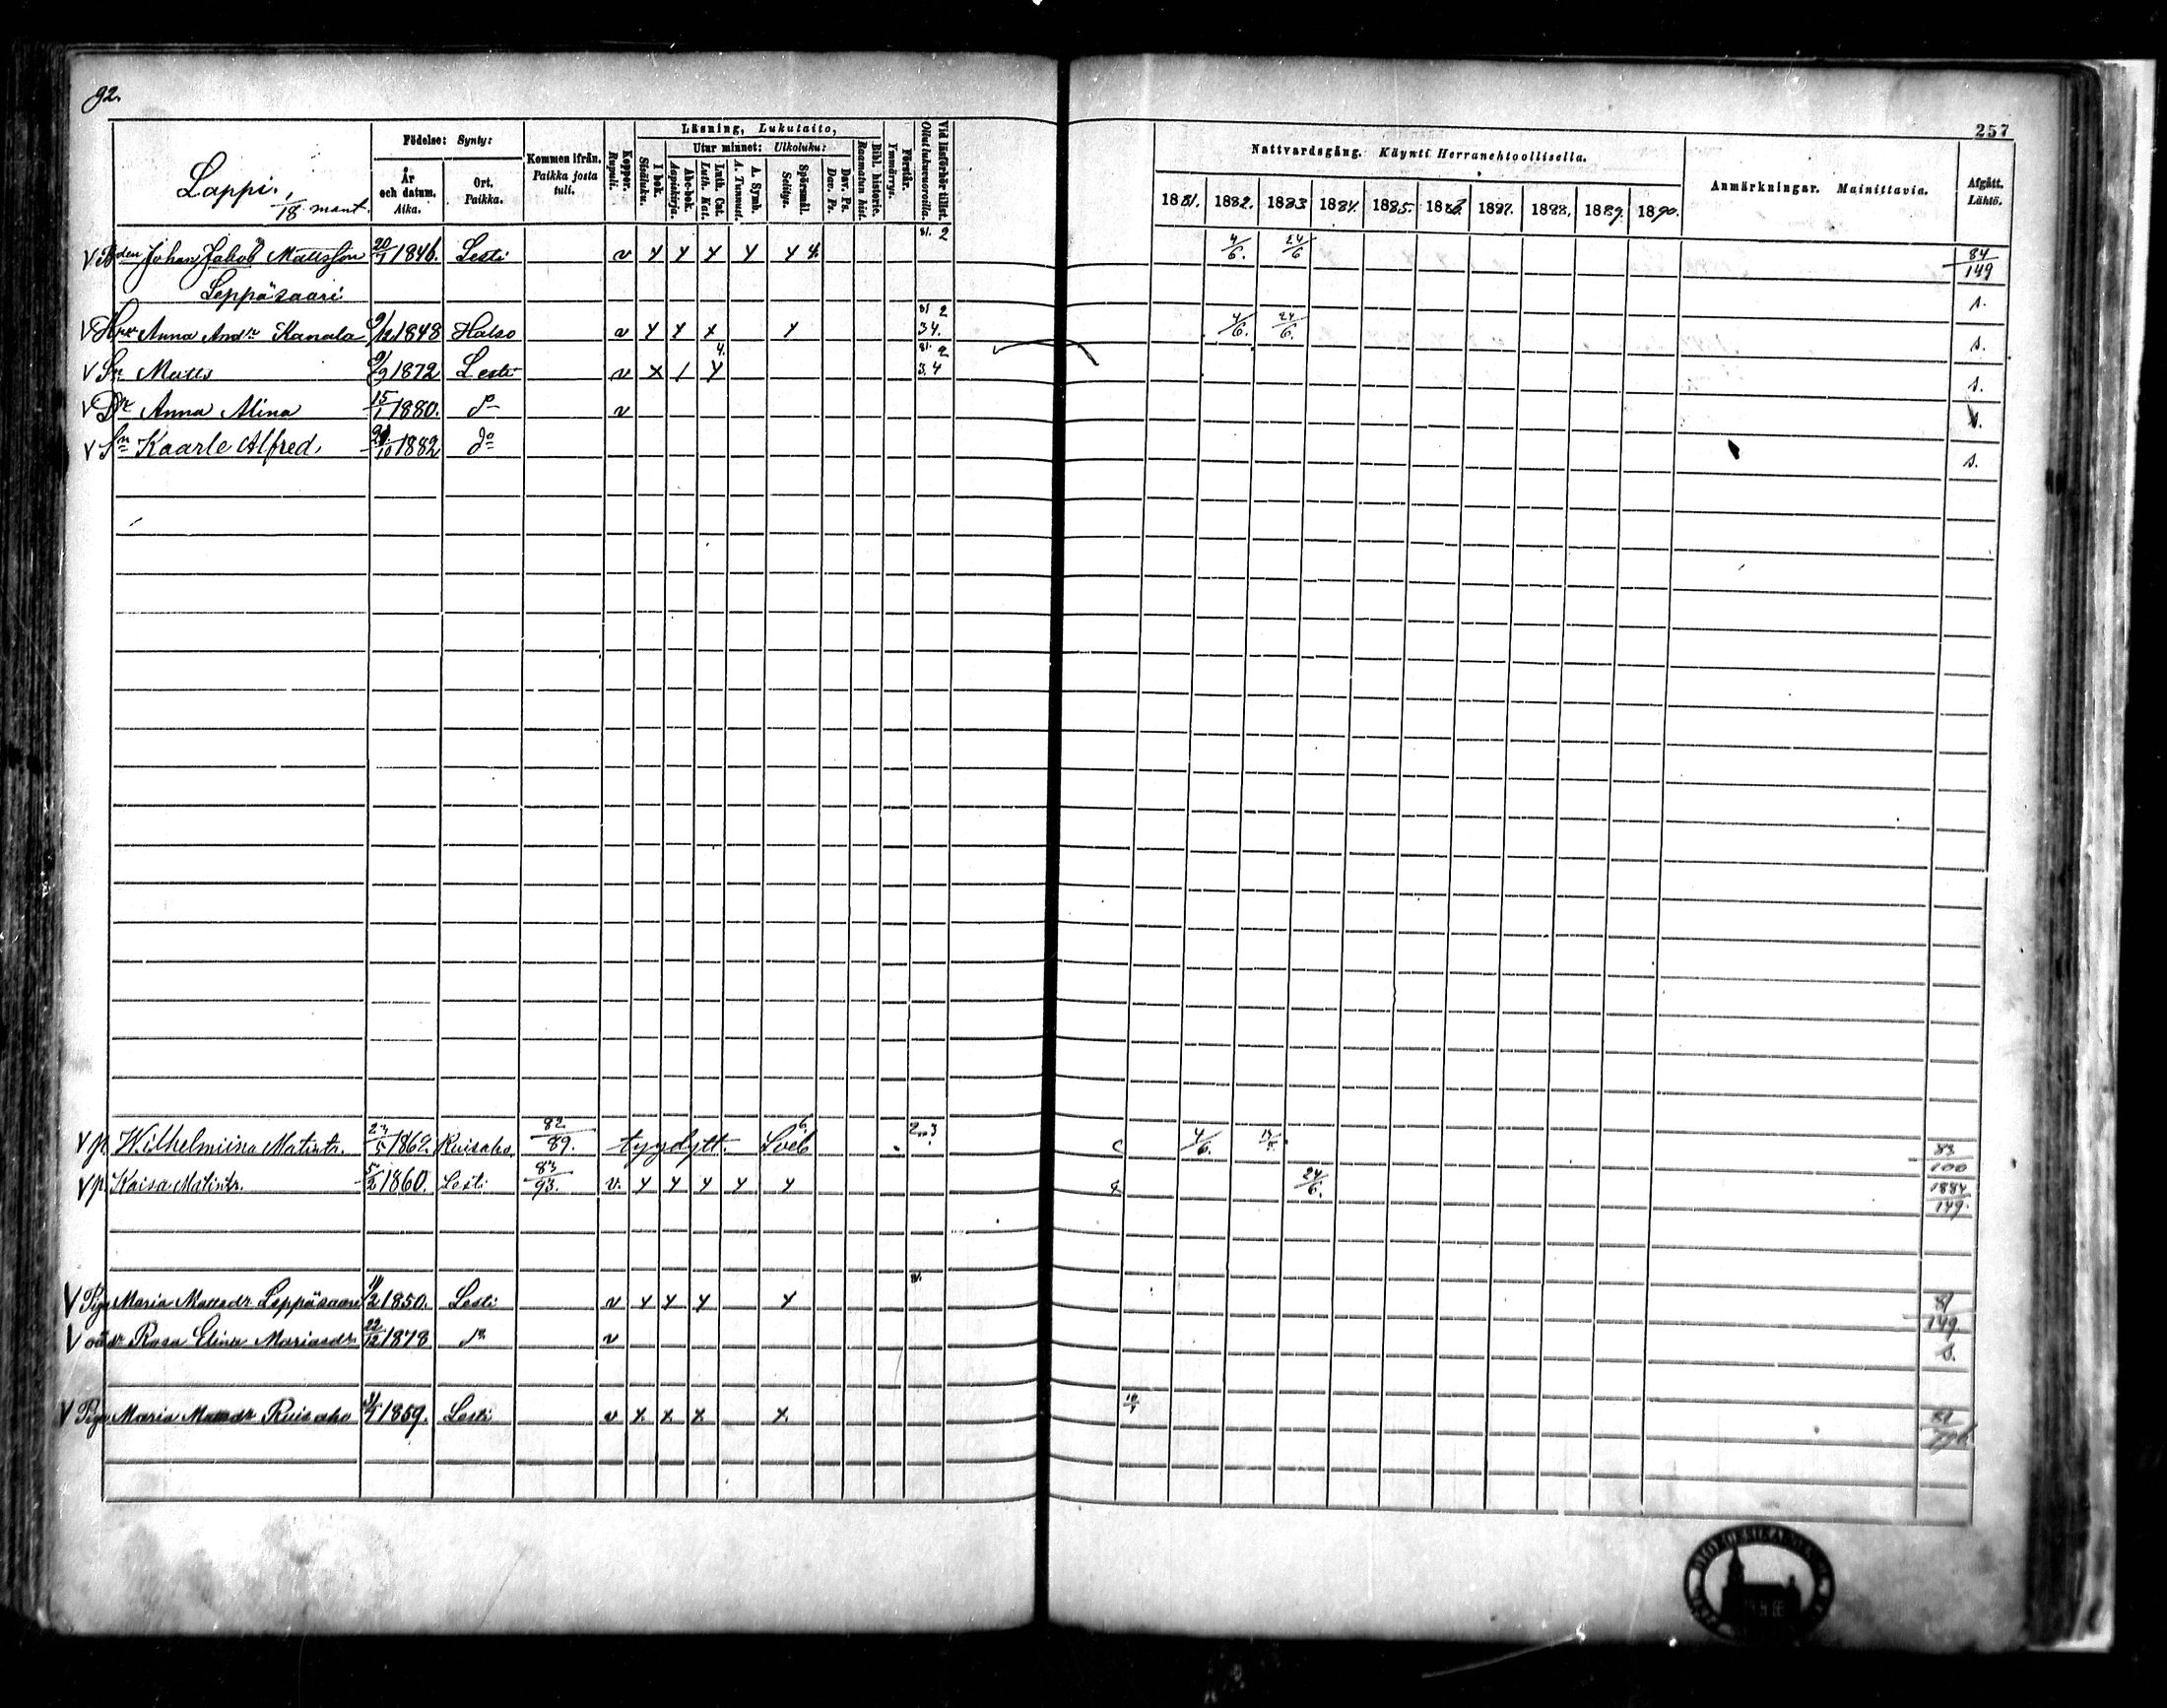 92.
257
Lappi. 1/18 mant.
Födelse: Synty:
År och datum. Aika.
Ort. Paikka.
Kommen ifrån. Paikka josta tuli.
Koppor. Rupuli.
Läsning, Lukutaito,
I bok. Sisäluku.
Utur minnet: Ulkoluku:
Abc-bok. Aapiskirja.
Luth. Cat. Luth. Kat.
A. Symb. A. Tunnust.
Spörsmål. Selitys.
Dav. Ps. Dav. Ps.
Bibl. historie. Raamatun hist.
Förstår. Ymmärrys.
Vid läsförhör tillst. Ollut lukuvuorolla.
Nattvardsgång. Käynti Herranehtoollisella.
1881. 1882. 1883 1884. 1885. 1886. 1887. 1888. 1889. 1890.
Anmärkningar. Mainittavia.
Afgått. Lähtö.
V Bden Johan Jakob Mattsson 20/1 1846. Lesti v 81. 2 4/6. 24/6 84/149
Leppäsaari s.
V Hru Anna Andrs Kanala 9/12 1848 Halso v 81 2 34. 4/6. 24/6. s.
V Sn Matts 9/9 1872 Lesti v 4. 81. 2 3.4 s.
V Dr Anna Alina 15/1 1880. do v s.
V Sn Kaarle Alfred. /10 1882 do s.
V p. Wilhelmiina Matintr. 23/5 1862. Ruisaho. 82/89. tyydytt. 6. 2 3 4/6. 83/100
V p. Kaisa Matintr. 5/2 1860. Lesti 83/93. v. 24/6. 1884/149.
V Piga Maria Mattsdr Leppäsaari /2 1850. Lesti v 81. 81/149.
V oä dr Rosa Elina Mariasdr 22/12 1878 do v s.
V Piga Maria Mattsdr Ruisaho 1859. Lesti v 81